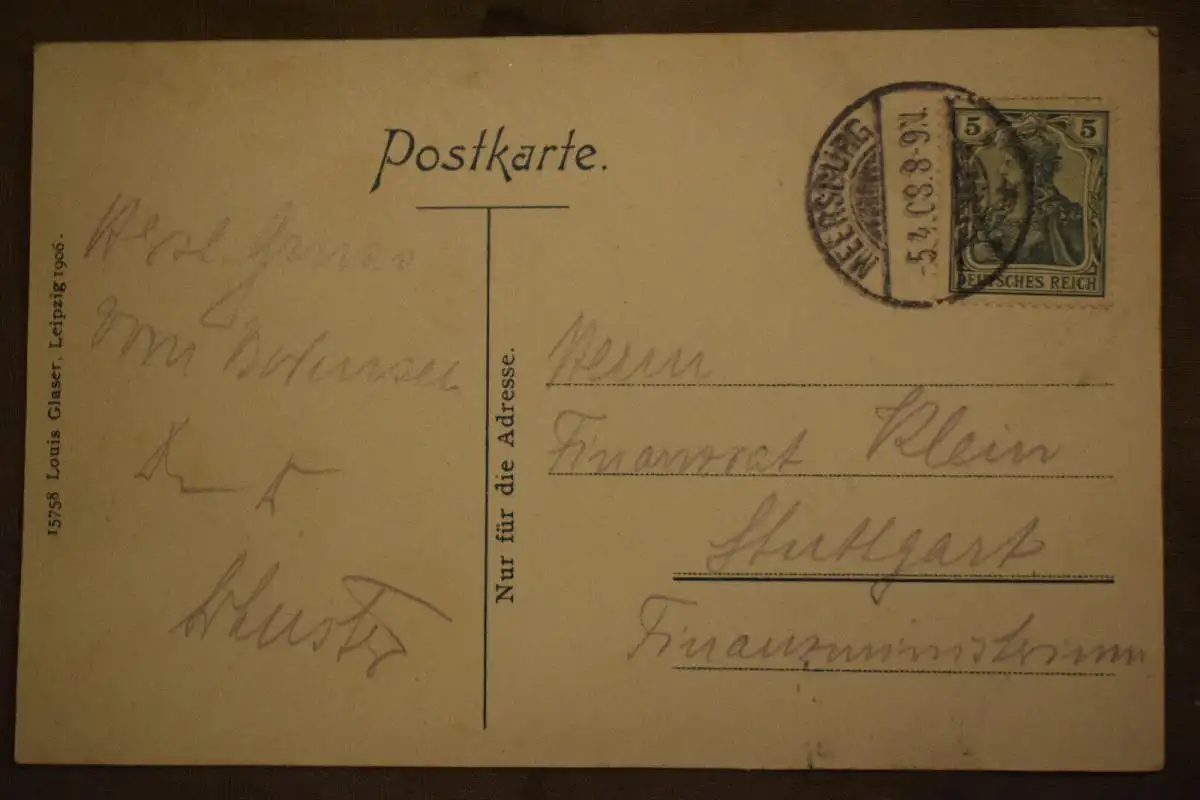 Postkarte.
MEERSBURG
-5.4.08.8-9N.
5 5
DEUTSCHES REICH
15758 Louis Glaser, Leipzig 1906.
Herzl Gruss
vom Bodensee
Schuster
Nur für die Adresse.
Herrn
Finanzrat Klein
Stuttgart
Finanzministerium